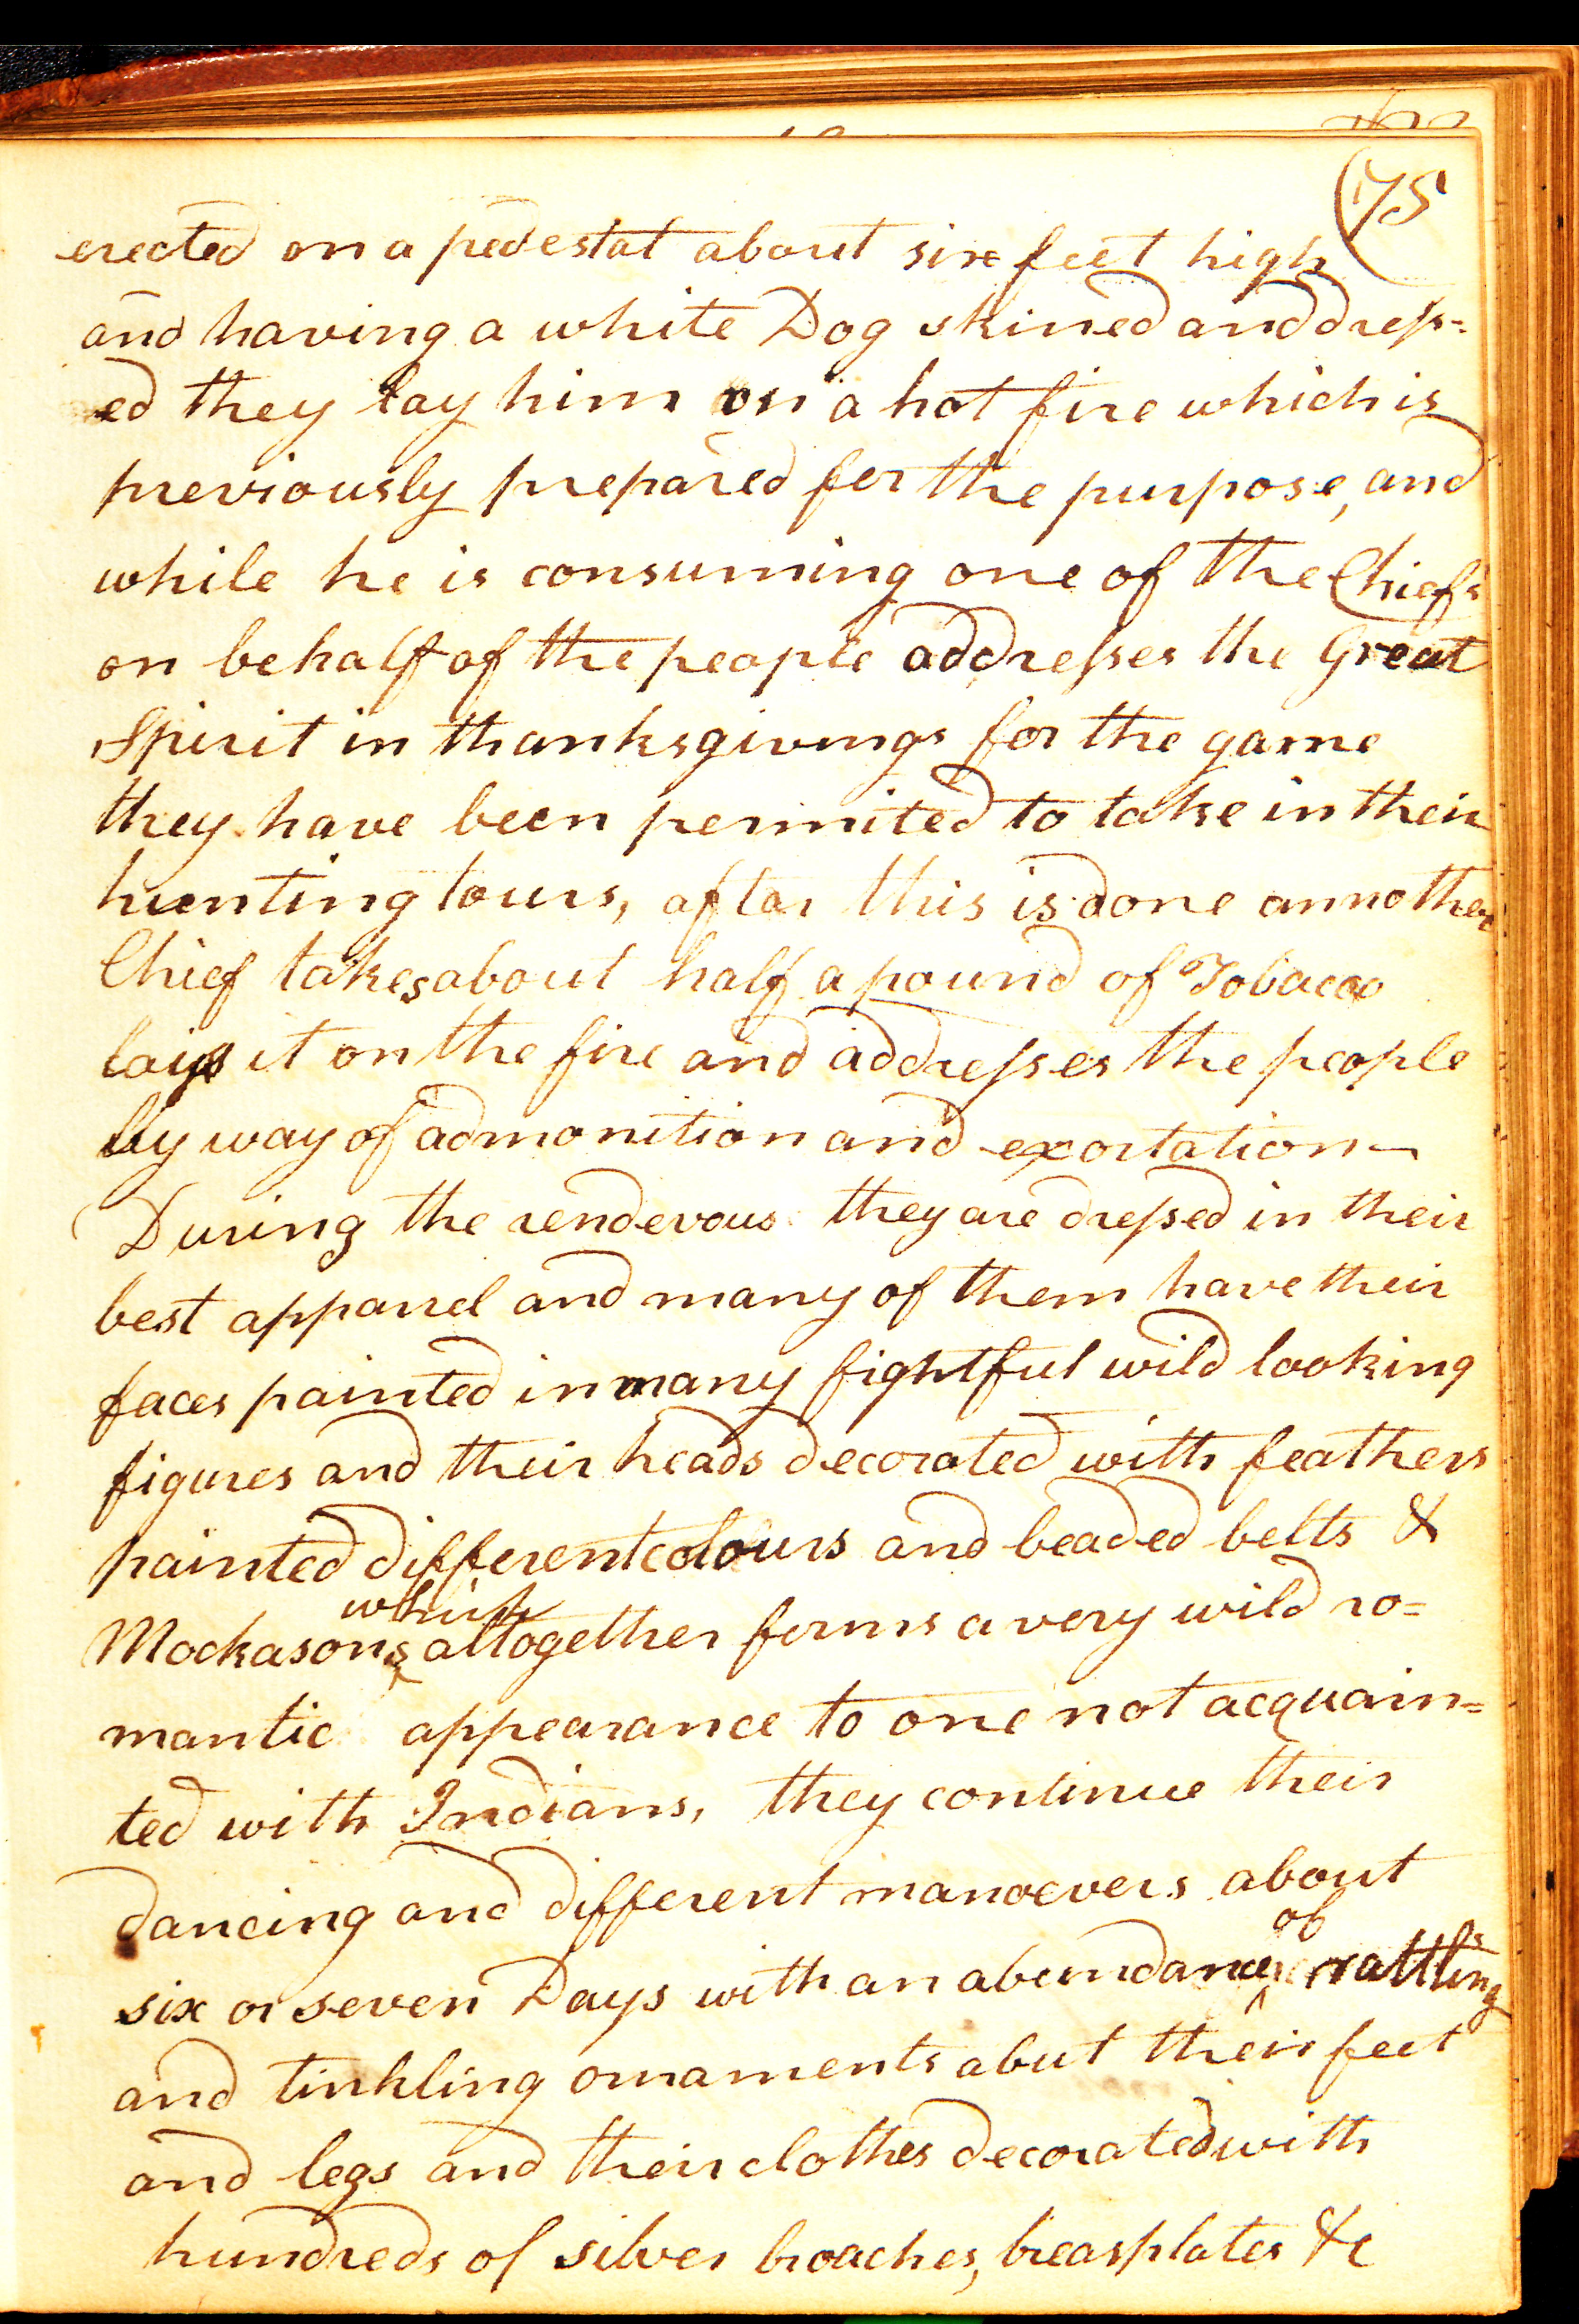 175
erected on a pedestat about six feet high
and having a white Dog skined and dress=
ed they lay him on a hot fire which is
previously prepared for the purpose, and
while he is consuming one of the Chiefs
on behalf of the people addresses the Great
Spirit in thanksgivings for the game
they have been permited to take in their
hunting tours, after this is done annother
Chief takes about half a pound of Tobacco
lays it on the fire and addresses the people
by way of admonition and exortation—
During the rendevous they are dressed in their
best apparel and many of them have their
faces painted in many fightful wild looking
figures and their heads decorated with feathers
painted different colours and beaded belts &
which
Mockasons altogether forms a very wild ro=
mantic appearance to one not acquain=
ted with Indians, they continue their
dancing and different manoevers about
six or seven Days with an abundance of rattling
and tinkling ornaments abut their feet
and legs and their clothes decorated with
hundreds of silver broaches, breasplates &c